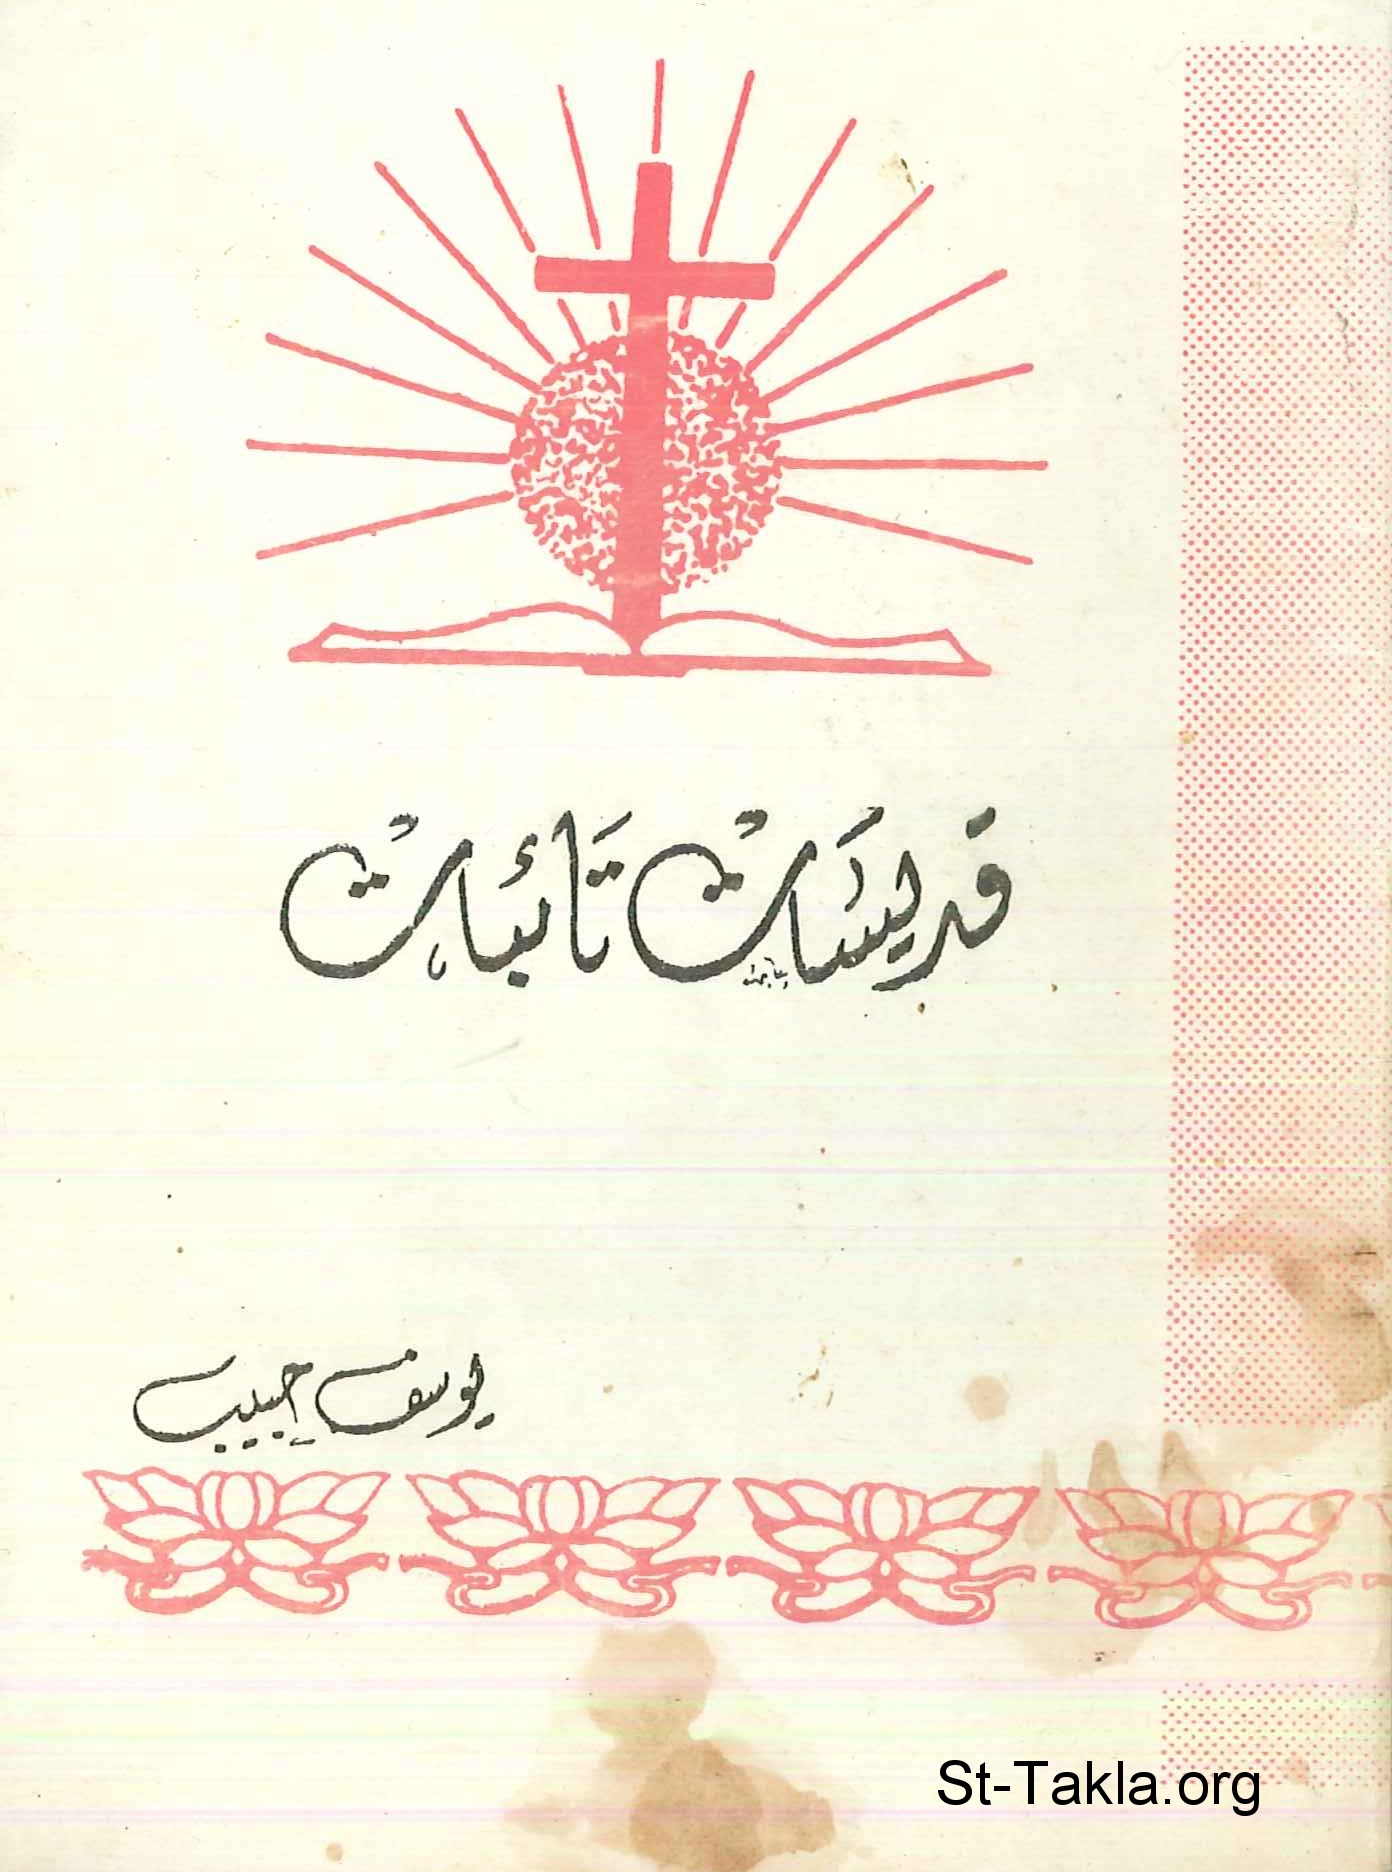 قديسات تائبات
يوسف حبيب
St-Takla.org